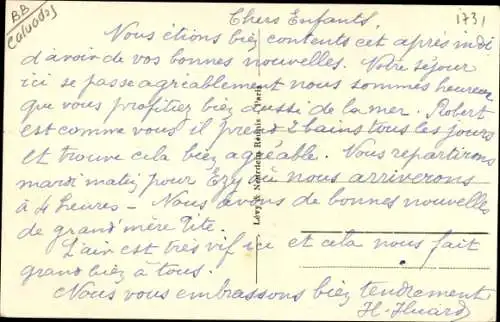 BB
Calvados
1731
Chers Enfants,
Nous étions biez contents cet après midi
d'avoir de vos bonnes nouvelles. Notre séjour
ici se passe agréablement nous sommes heureux
que vous profitiez biez aussi de la mer. Robert
est comme vous il prend 2 bains tous les jours
et trouve cela biez agréable. Nous repartirons
mardi matiz pour Ezy où nous arriverons
à 4 heures - Nous avons de bonnes nouvelles
de grand'mère Tite.
L'air est très vif ici et cela nous fait
grand biez à tous.
Nous vous embrassons biez tendrement
H. Huard
Lévy & Neurdein Réunis - Paris